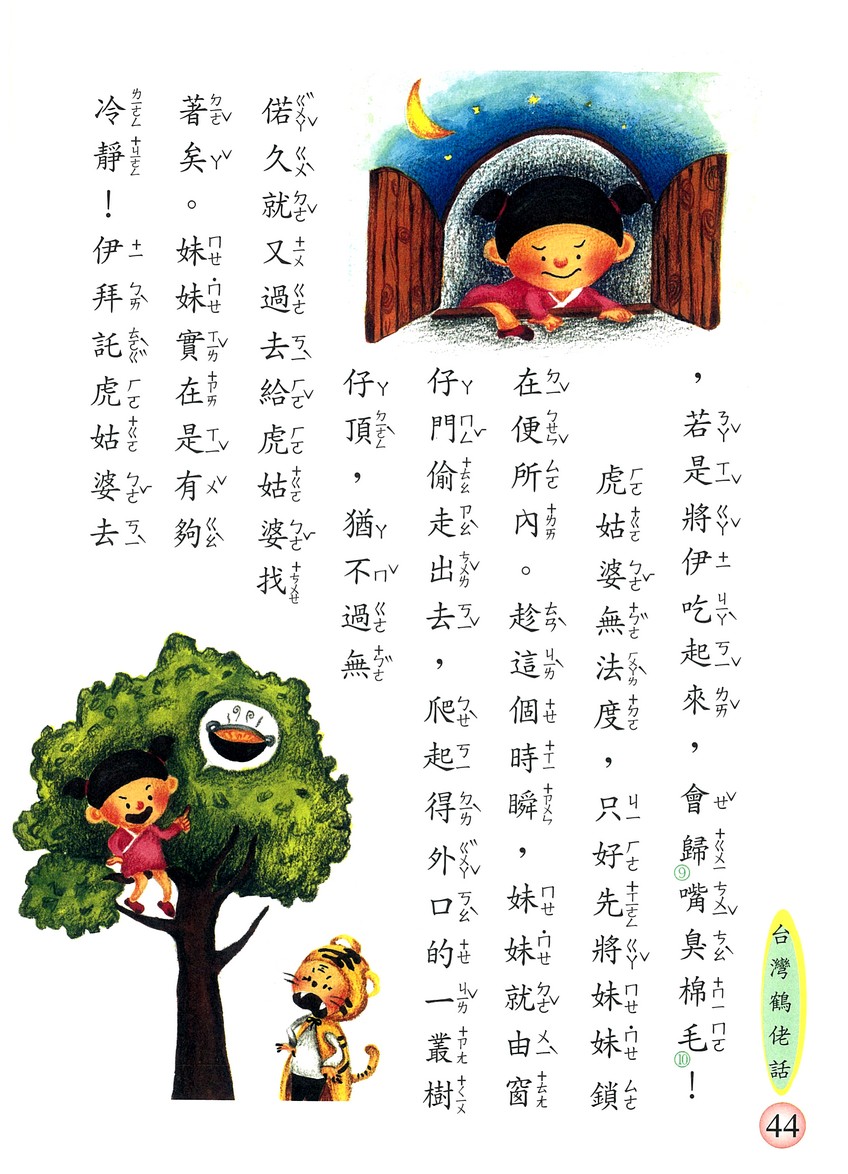 ，若是將伊吃起來，會歸⑨嘴臭棉毛⑩！
虎姑婆無法度，只好先將妹妹鎖
在便所內。趁這個時瞬，妹妹就由窗
仔門偷走出去，爬起得外口的一叢樹
仔頂，猶不過無
偌久就又過去給虎姑婆找
著矣。妹妹實在是有夠
冷靜！伊拜託虎姑婆去
台灣鶴佬話
44